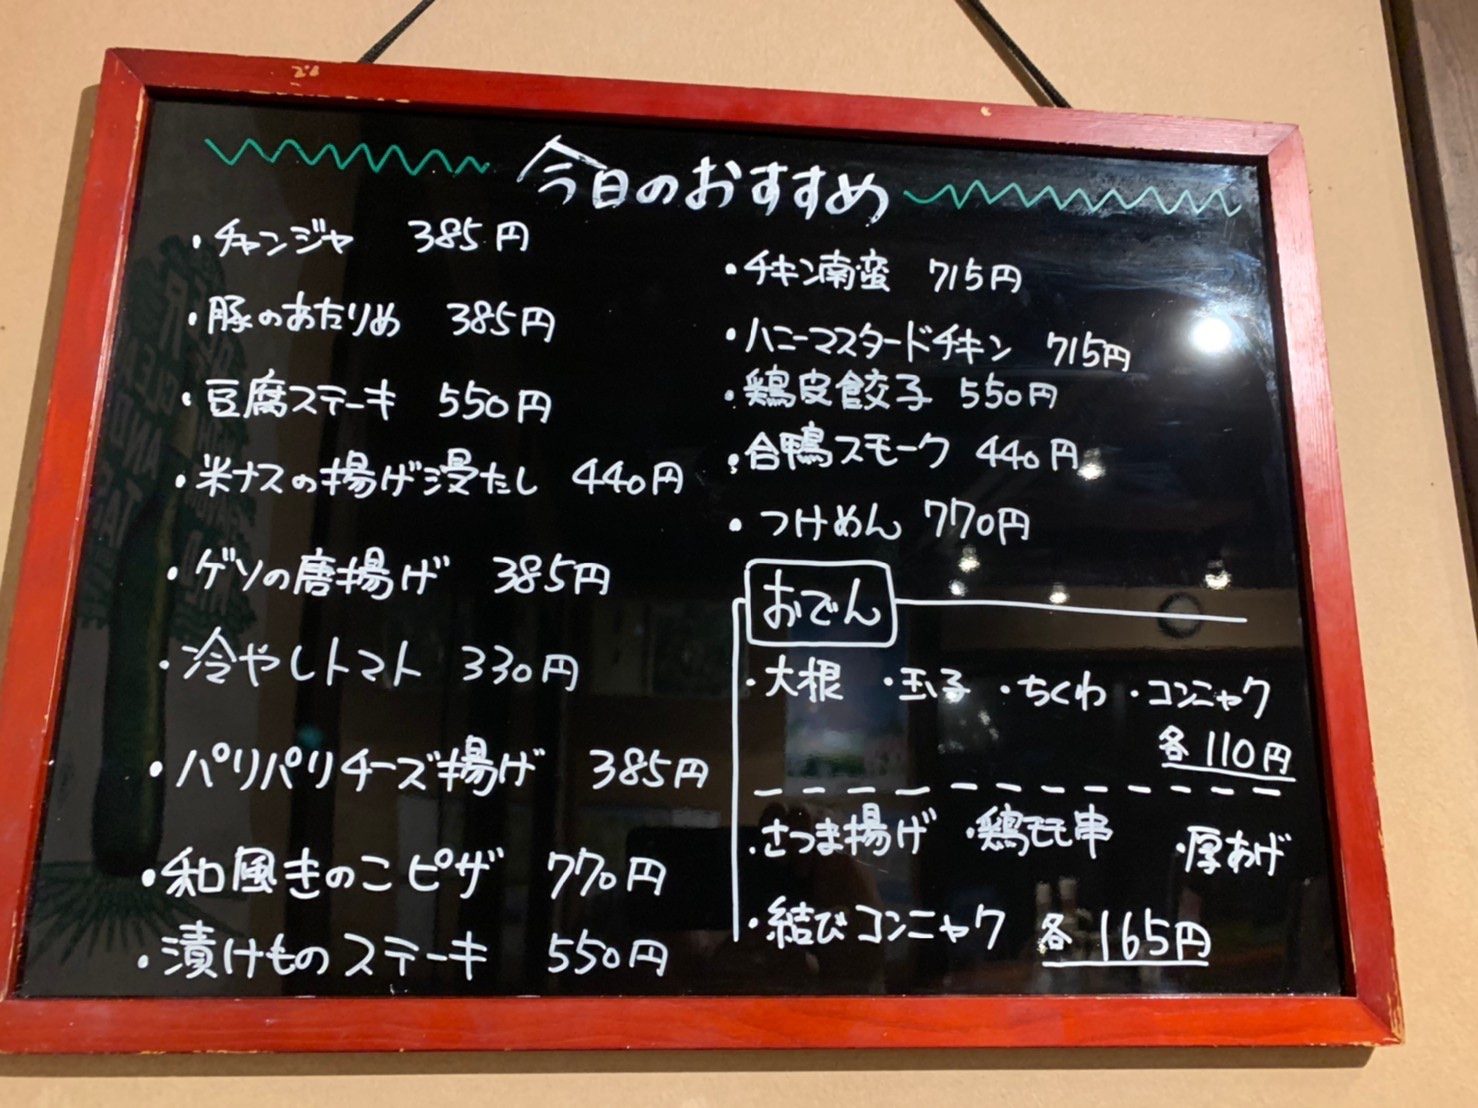 今日のおすすめ
・チャンジャ 385円
・豚のあたりめ 385円
・豆腐ステーキ 550円
・米ナスの揚げ浸たし 440円
・ゲソの唐揚げ 385円
・冷やしトマト 330円
・パリパリチーズ揚げ 385円
・和風きのこピザ 770円
・漬けものステーキ 550円
・チキン南蛮 715円
・ハニーマスタードチキン 715円
・鶏皮餃子 550円
・合鴨スモーク 440円
・つけめん 770円
おでん
・大根 ・玉子 ・ちくわ ・コンニャク
各110円
・さつま揚げ ・鶏モモ串 ・厚あげ
・結びコンニャク 各165円